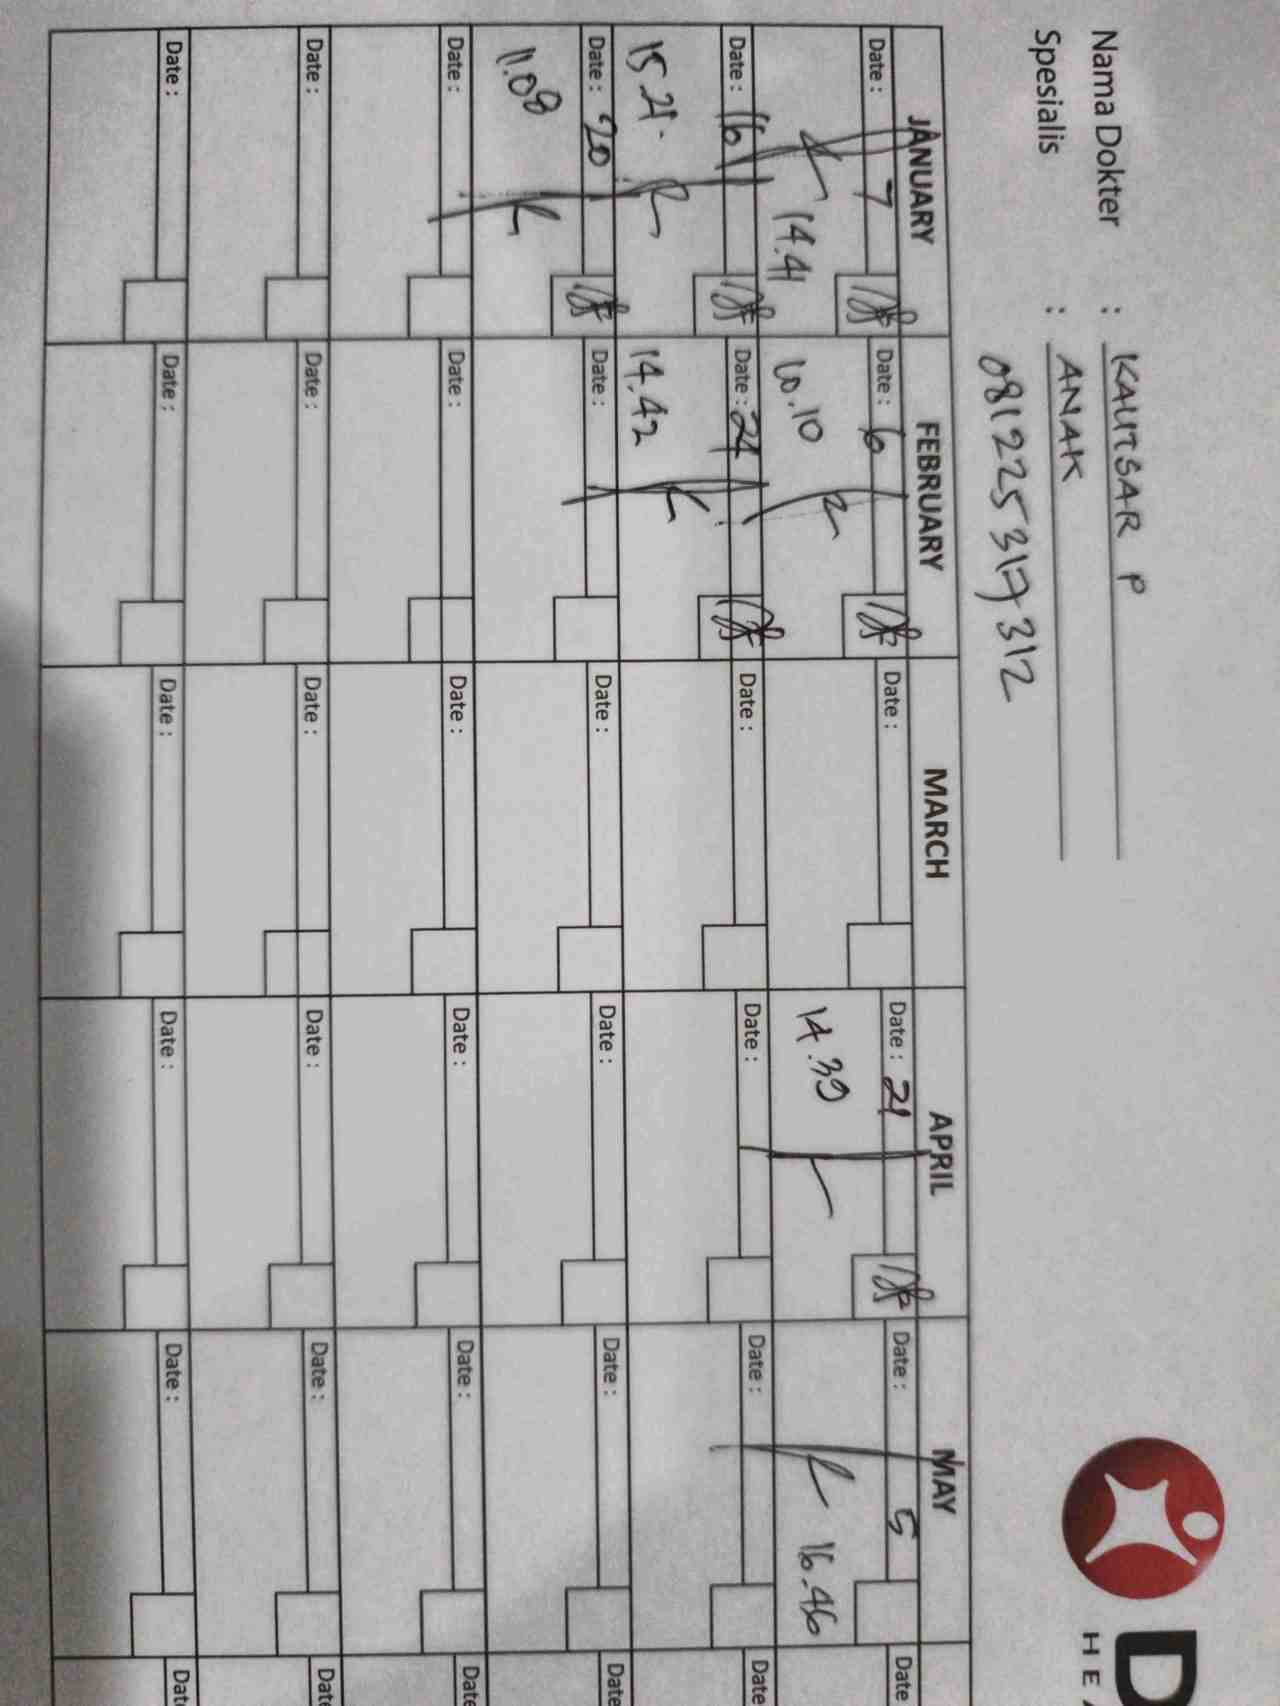 D
HEA
Nama Dokter : KAUTSAR P
Spesialis : ANAK
081225317312
JANUARY FEBRUARY MARCH APRIL MAY
Date : 7 Date : 6 Date : Date : 21 Date : 5 Date
14.41 10.10 14.39 16.46
Date : 16 Date : 24 Date : Date : Date : Date
15.21 14.42
Date : 20 Date : Date : Date : Date : Date
11.08
Date : Date : Date : Date : Date : Date
Date : Date : Date : Date : Date : Date
Date : Date : Date : Date : Date : Date